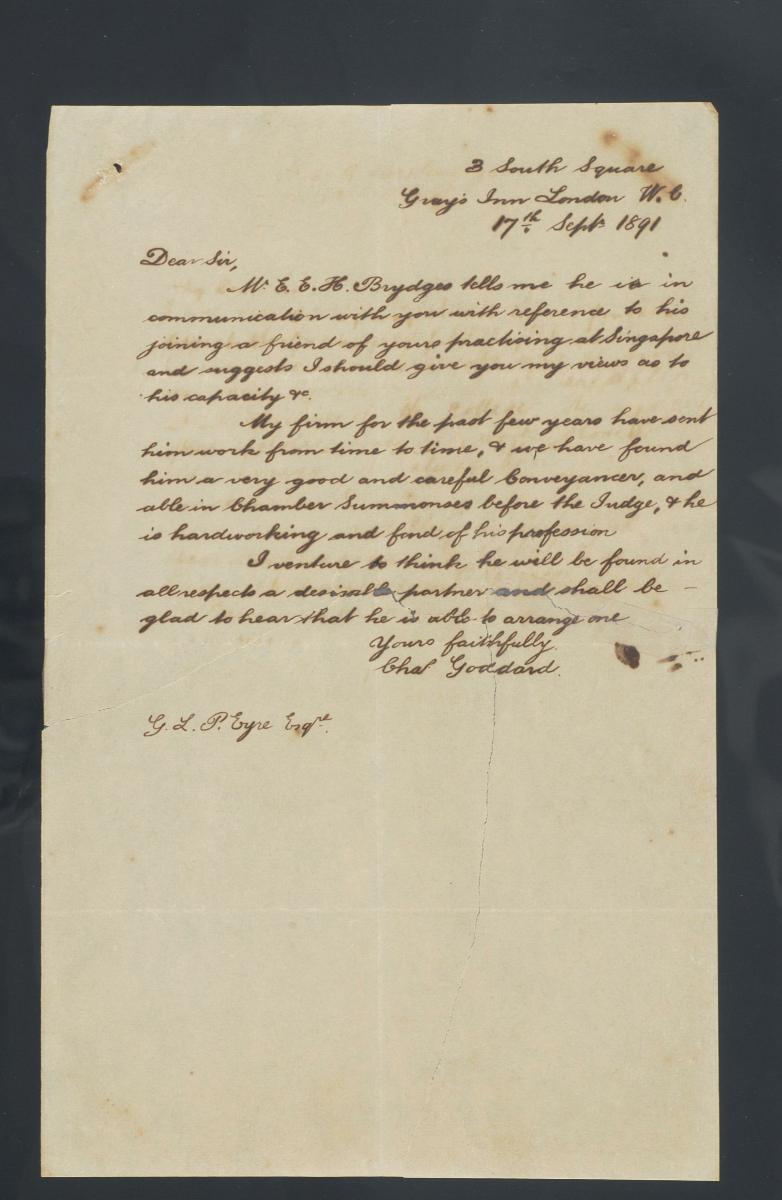 3 South Square
Gray's Inn London W.C.
17th Sept 1891
Dear Sir,
Mr. E. E. H. Brydges tells me he is in
communication with you with reference to his
joining a friend of yours practising at Singapore
and suggests I should give you my views as to
his capacity &c.
My firm for the past few years have sent
him work from time to time, & we have found
him a very good and careful Conveyancer, and
able in Chamber Summonses before the Judge, & he
is hardworking and fond of his profession
I venture to think he will be found in
all respects a desirable partner and shall be –
glad to hear that he is able to arrange one
Yours faithfully.
Chas Goddard.
G. L. P. Eyre Esqre.